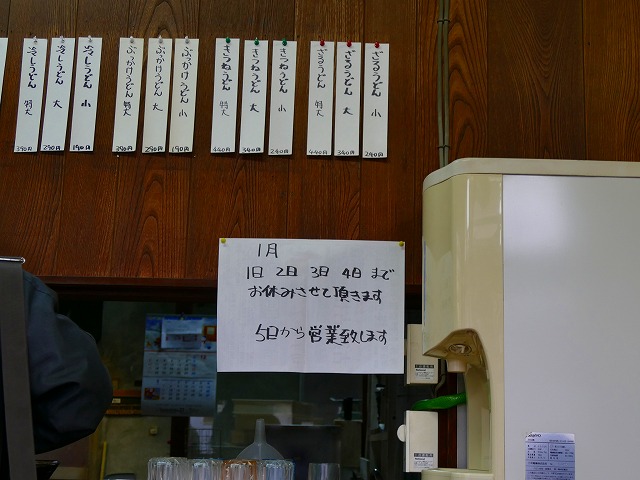 ざるうどん 小 240円
ざるうどん 大 340円
ざるうどん 特大 440円
きつねうどん 小 240円
きつねうどん 大 340円
きつねうどん 特大 440円
ぶっかけうどん 小 190円
ぶっかけうどん 大 290円
ぶっかけうどん 特大 390円
冷しうどん 小 190円
冷しうどん 大 290円
冷しうどん 特大 390円
1月
1日 2日 3日 4日 まで
お休みさせて頂きます
5日から営業致します